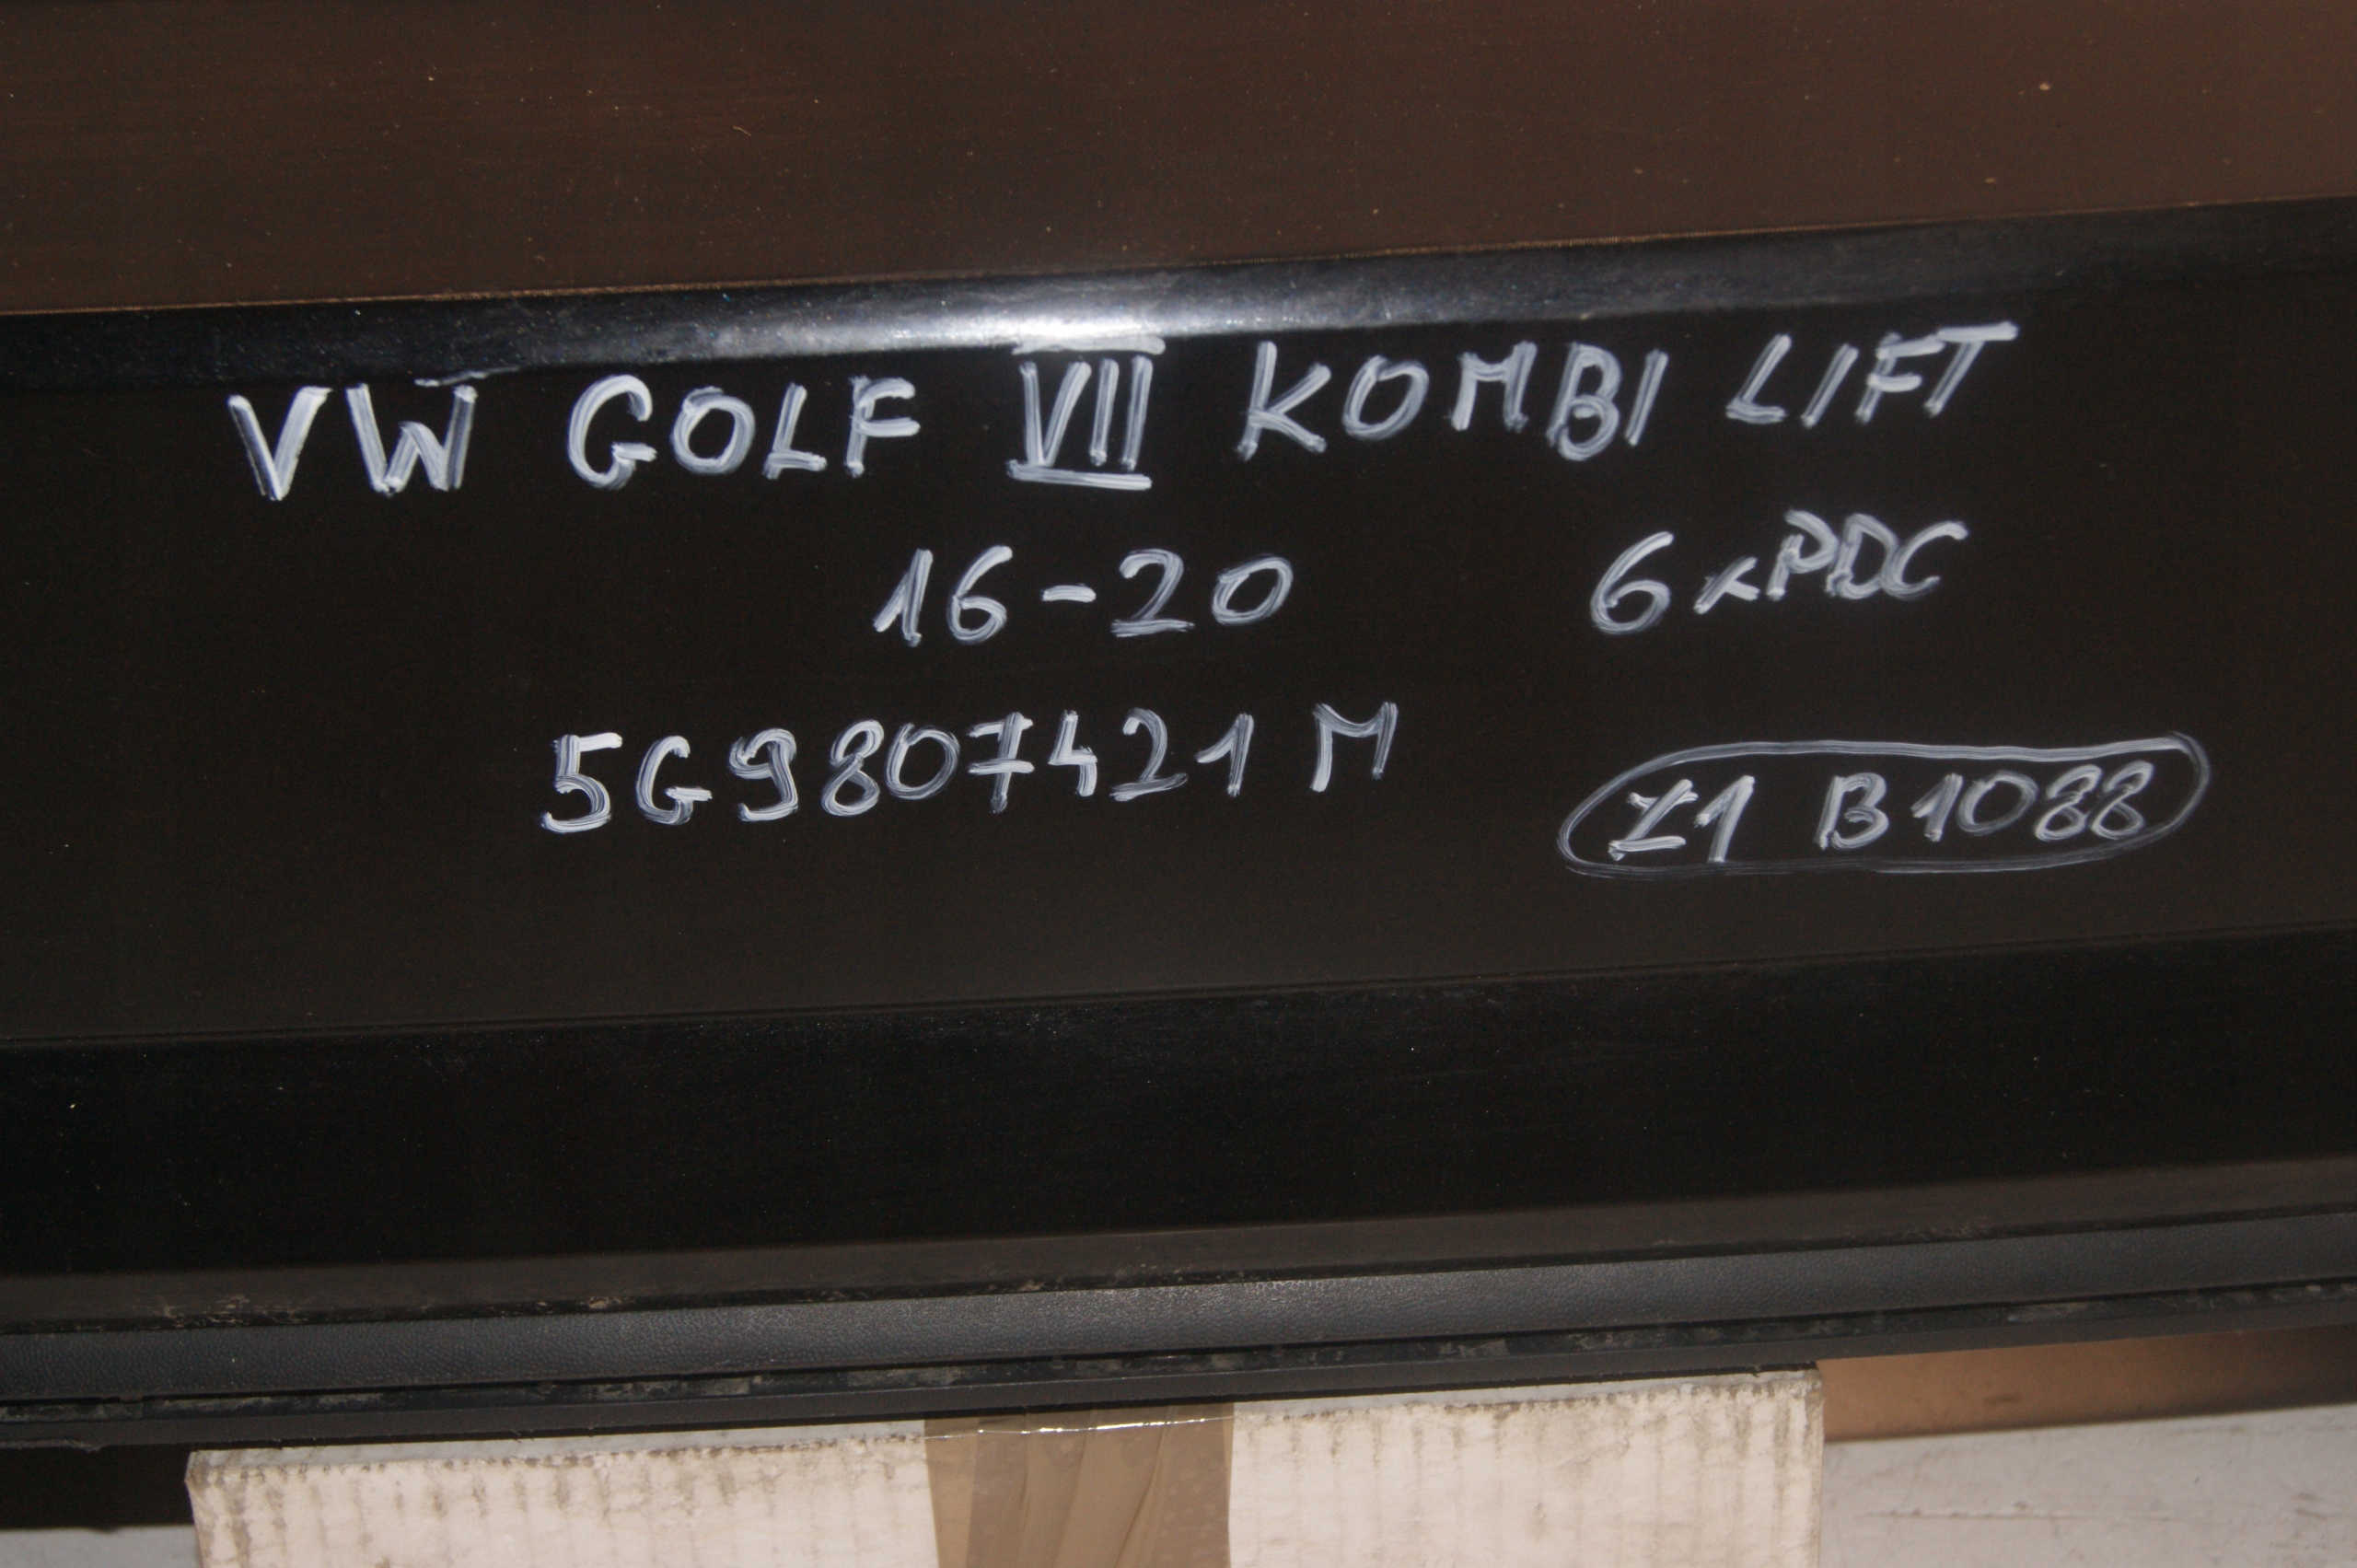 VW GOLF VII KOMBI LIFT
16-20 6xPDC
5G9807421M
Z1 B1088